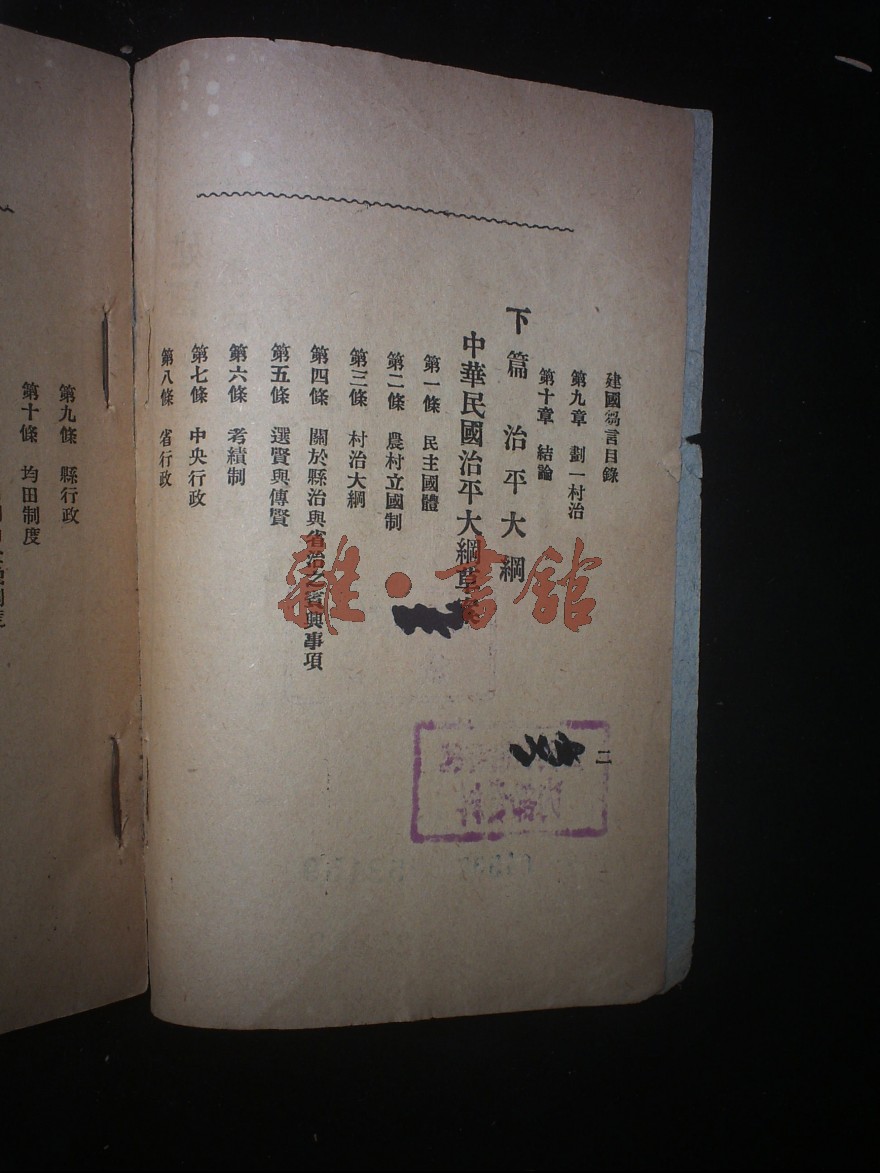 建國芻言目錄
第九章 劃一村治
第十章 結論
下篇 治平大綱
中華民國治平大綱草案
第一條 民主國體
第二條 農村立國制
第三條 村治大綱
第四條 關於縣治與省治之賓興事項
第五條 選賢與傳賢
第六條 考績制
第七條 中央行政
第八條 省行政
二
第九條 縣行政
第十條 均田制度
雜·書館